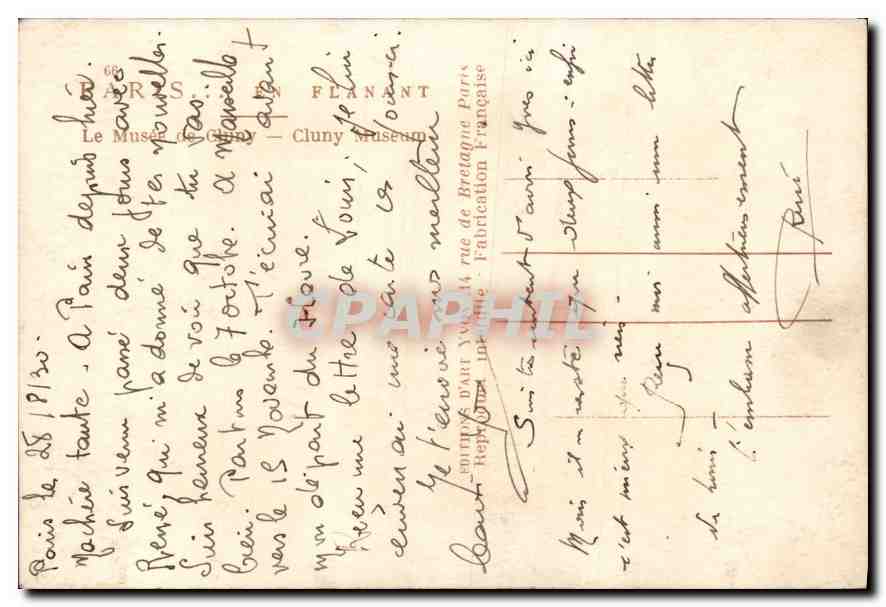 68
PARIS... EN FLANANT
Le Musée de Cluny — Cluny Museum
EDITIONS D'ART YVON, 14 rue de Bretagne Paris
Reproduction interdite - Fabrication Française
Paris le 28/8/30.
Ma chère tante. A Paris depuis hier.
suis venu passé deux jours avec
qui m'a donné de tes nouvelles.
Suis heureux de voir que tu vas
bien. Partons le 7 octobre. A Marseille
vers le 15 Novembre. T'écrirai avant
mon départ du Havre.
Reçu une lettre de Louis, je lui
enverrai une carte ces jours ci.
Je t'envoie mes meilleurs
Suis très content d'avoir Yves ici
Mais il ne reste que deux jours - enfin
c'est mieux que rien -
mis aussi une lettre
de Louis -
t'embrasse affectueusement
René
CPAPHIL